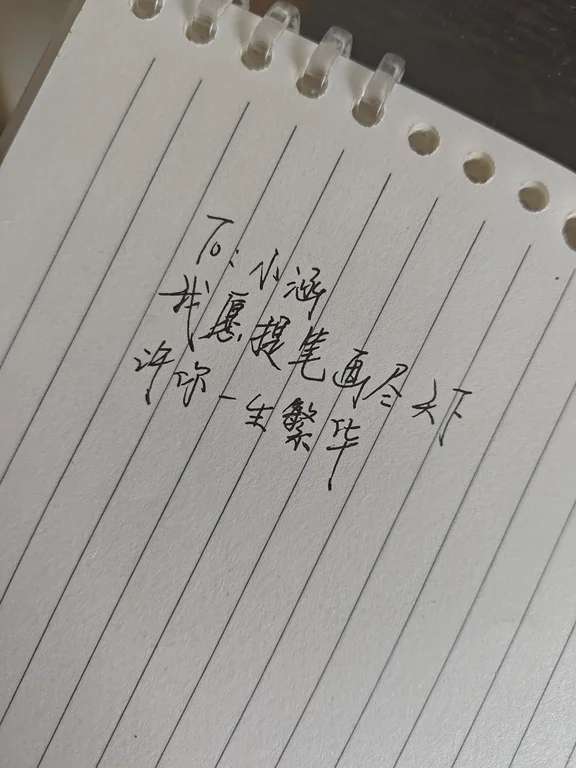 To: 小涵
我愿提笔画尽天下
许你一生繁华